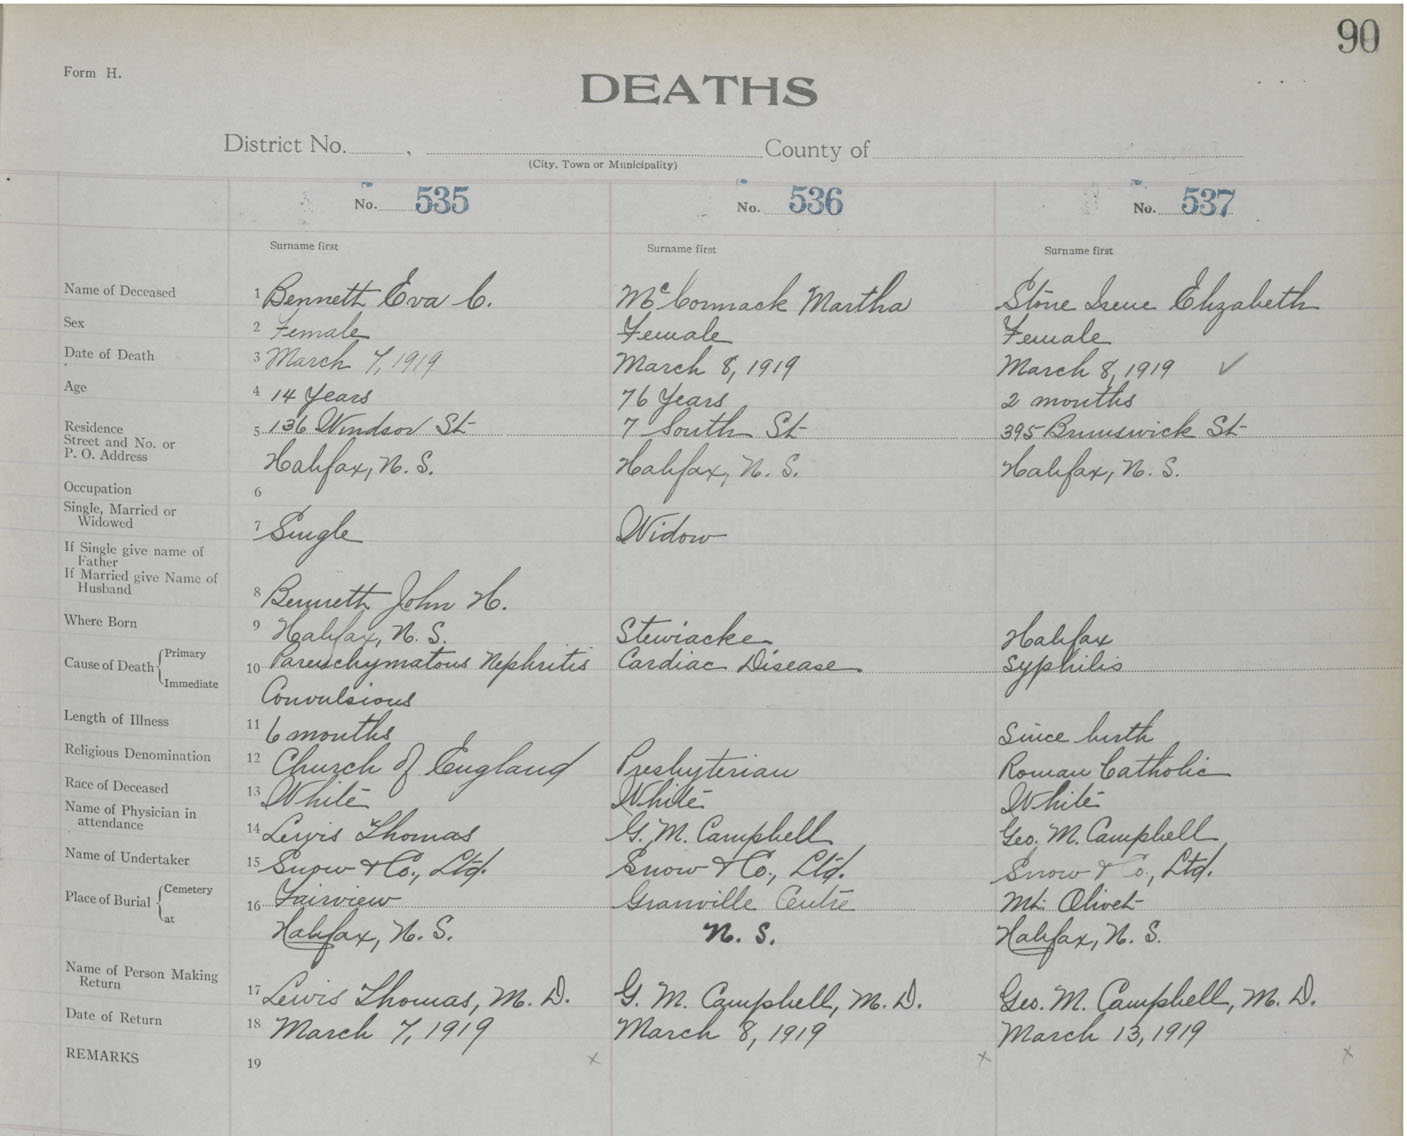 90
Form H.
DEATHS
District No. , County of
(City, Town or Municipality)
No. 535 No. 536 No. 537
Surname first Surname first Surname first
Name of Deceased 1 Bennett Eva C. McCormack Martha Stone Irene Elizabeth
Sex 2 Female Female Female
Date of Death 3 March 7, 1919 March 8, 1919 March 8, 1919 ✓
Age 4 14 Years 76 Years 2 months
Residence 5 136 Windsor St 7 South St 395 Brunswick St
Street and No. or
P. O. Address Halifax, N. S. Halifax, N. S. Halifax, N. S.
Occupation 6
Single, Married or
Widowed 7 Single Widow
If Single give name of
Father
If Married give Name of
Husband 8 Bennett John H.
Where Born 9 Halifax, N. S. Stewiacke Halifax
Cause of Death { Primary 10 Parenchymatous Nephritis Cardiac Disease Syphilis
Immediate Convulsions
Length of Illness 11 6 months Since birth
Religious Denomination 12 Church of England Presbyterian Roman Catholic
Race of Deceased 13 White White White
Name of Physician in
attendance 14 Lewis Thomas G. M. Campbell Geo. M. Campbell
Name of Undertaker 15 Snow & Co., Ltd. Snow & Co., Ltd. Snow & Co., Ltd.
Place of Burial { Cemetery 16 Fairview Granville Centre Mt. Olivet
at Halifax, N. S. N. S. Halifax, N. S.
Name of Person Making
Return 17 Lewis Thomas, M. D. G. M. Campbell, M. D. Geo. M. Campbell, M. D.
Date of Return 18 March 7, 1919 March 8, 1919 March 13, 1919
REMARKS 19 x x x